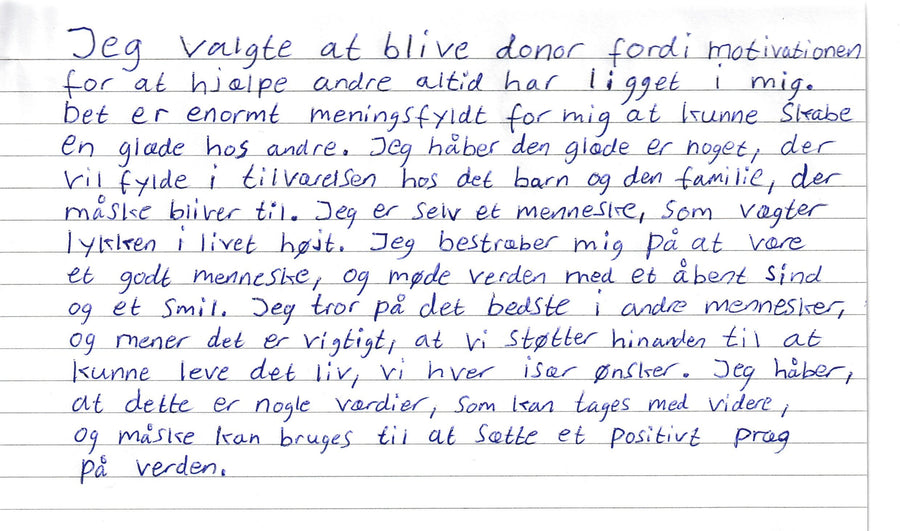 Jeg valgte at blive donor fordi motivationen
for at hjælpe andre altid har ligget i mig.
Det er enormt meningsfyldt for mig at kunne skabe
en glæde hos andre. Jeg håber den glæde er noget, der
vil fylde i tilværelsen hos det barn og den familie, der
måske bliver til. Jeg er selv et menneske, som vægter
lykken i livet højt. Jeg bestræber mig på at være
et godt menneske, og møde verden med et åbent sind
og et smil. Jeg tror på det bedste i andre mennesker,
og mener det er vigtigt, at vi støtter hinanden til at
kunne leve det liv, vi hver især ønsker. Jeg håber,
at dette er nogle værdier, som kan tages med videre,
og måske kan bruges til at sætte et positivt præg
på verden.